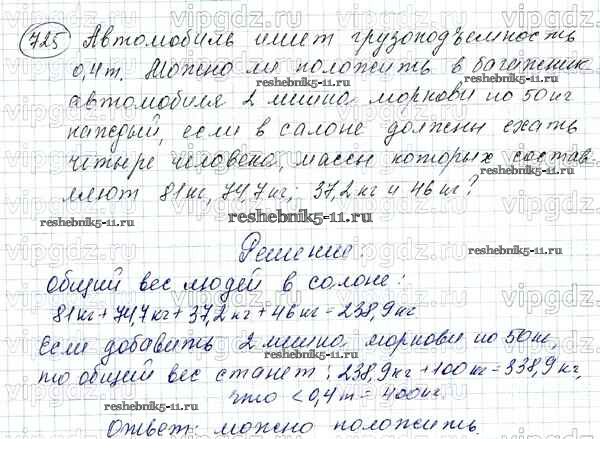 725 Автомобиль имеет грузоподъемность
0,4т. Можно ли положить в багажник
автомобиля 2 мешка моркови по 50кг
каждый, если в салоне должны ехать
четыре человека, массы которых состав-
ляют 81кг, 74,7кг; 37,2кг и 46кг?
Решение:
Общий вес людей в салоне:
81кг+74,7кг+37,2кг+46кг=238,9кг
Если добавить 2 мешка моркови по 50кг,
то общий вес станет: 238,9кг+100кг=338,9кг,
что <0,4т=400кг.
Ответ: можно положить.
vipgdz.com
reshebnik5-11.ru